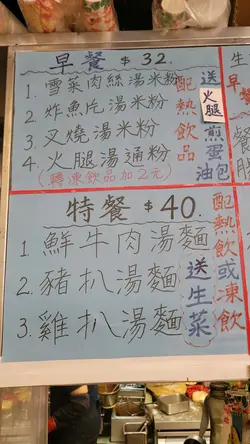 早餐 $32.
1. 雪菜肉絲湯米粉
2. 炸魚片湯米粉
3. 叉燒湯米粉
4. 火腿湯通粉
(轉凍飲品加2元)
配熱飲品
送火腿煎蛋油包
特餐 $40.
1. 鮮牛肉湯麵
2. 豬扒湯麵
3. 雞扒湯麵
送生菜
配熱飲或凍飲